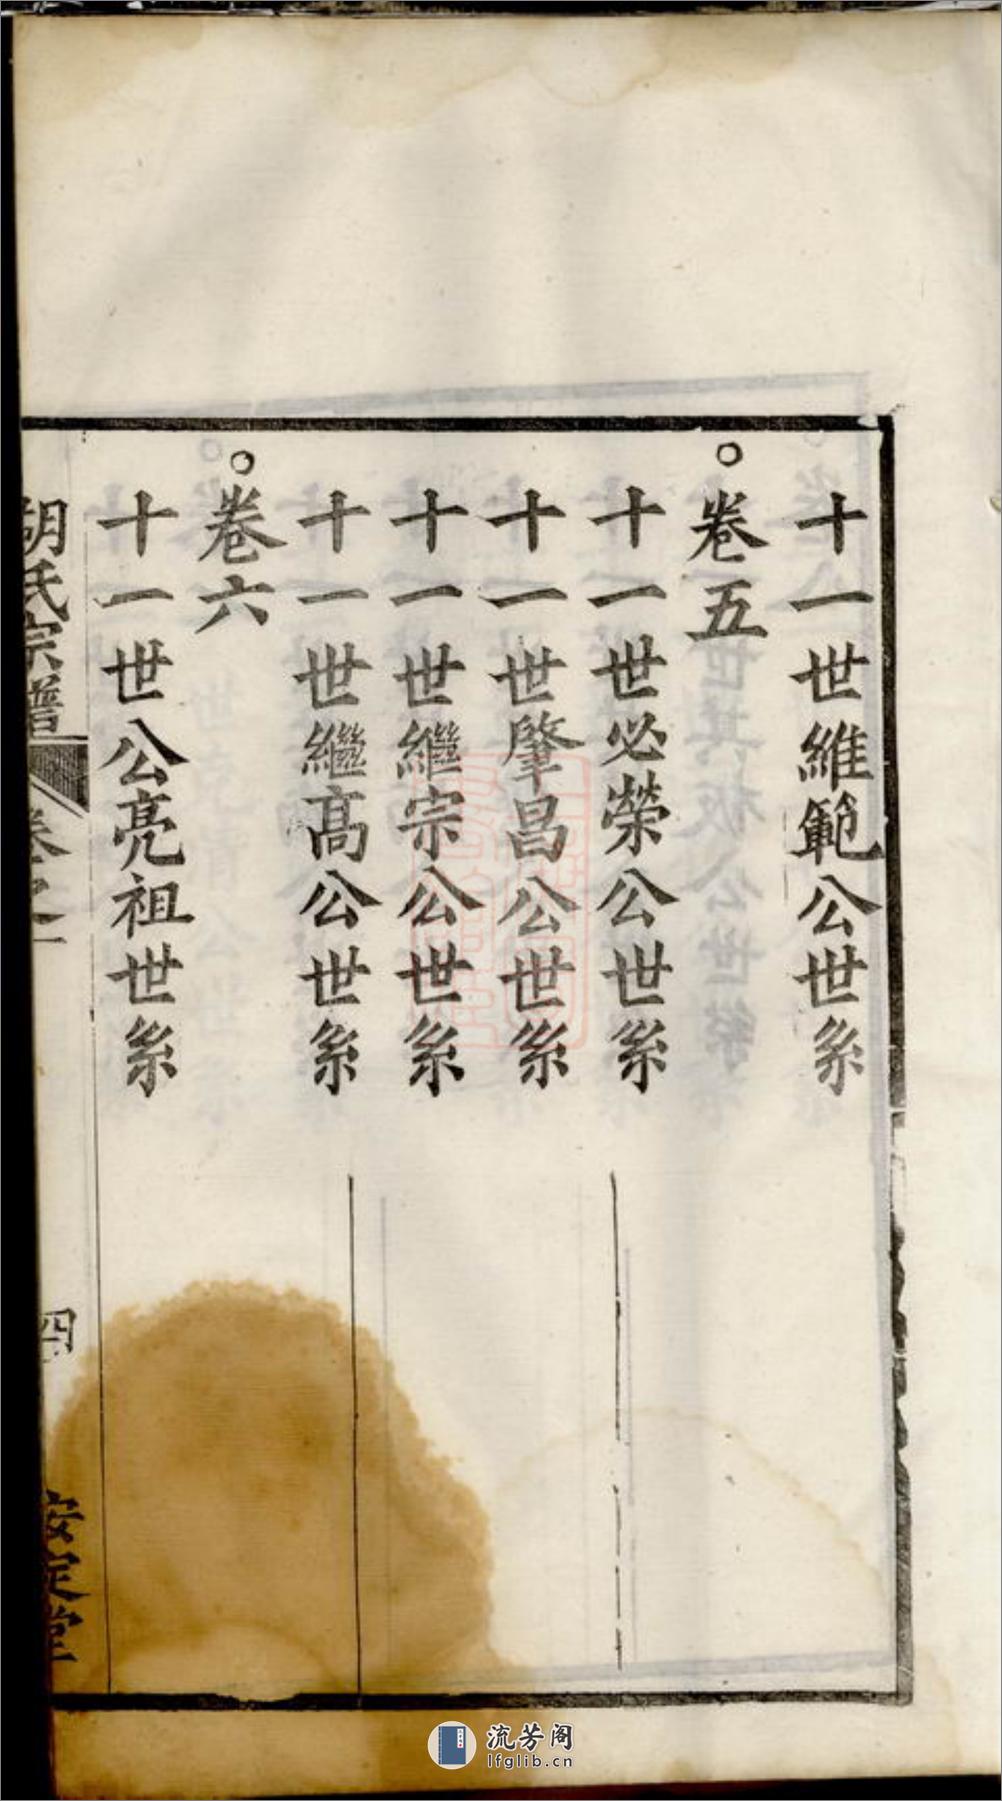 十一世維範公世系
○卷五
十一世必榮公世系
十一世肇昌公世系
十一世繼宗公世系
十一世繼高公世系
○卷六
十一世公亮祖世系
胡氏宗譜
卷之一
四
安定堂
流芳阁
lfglib.cn